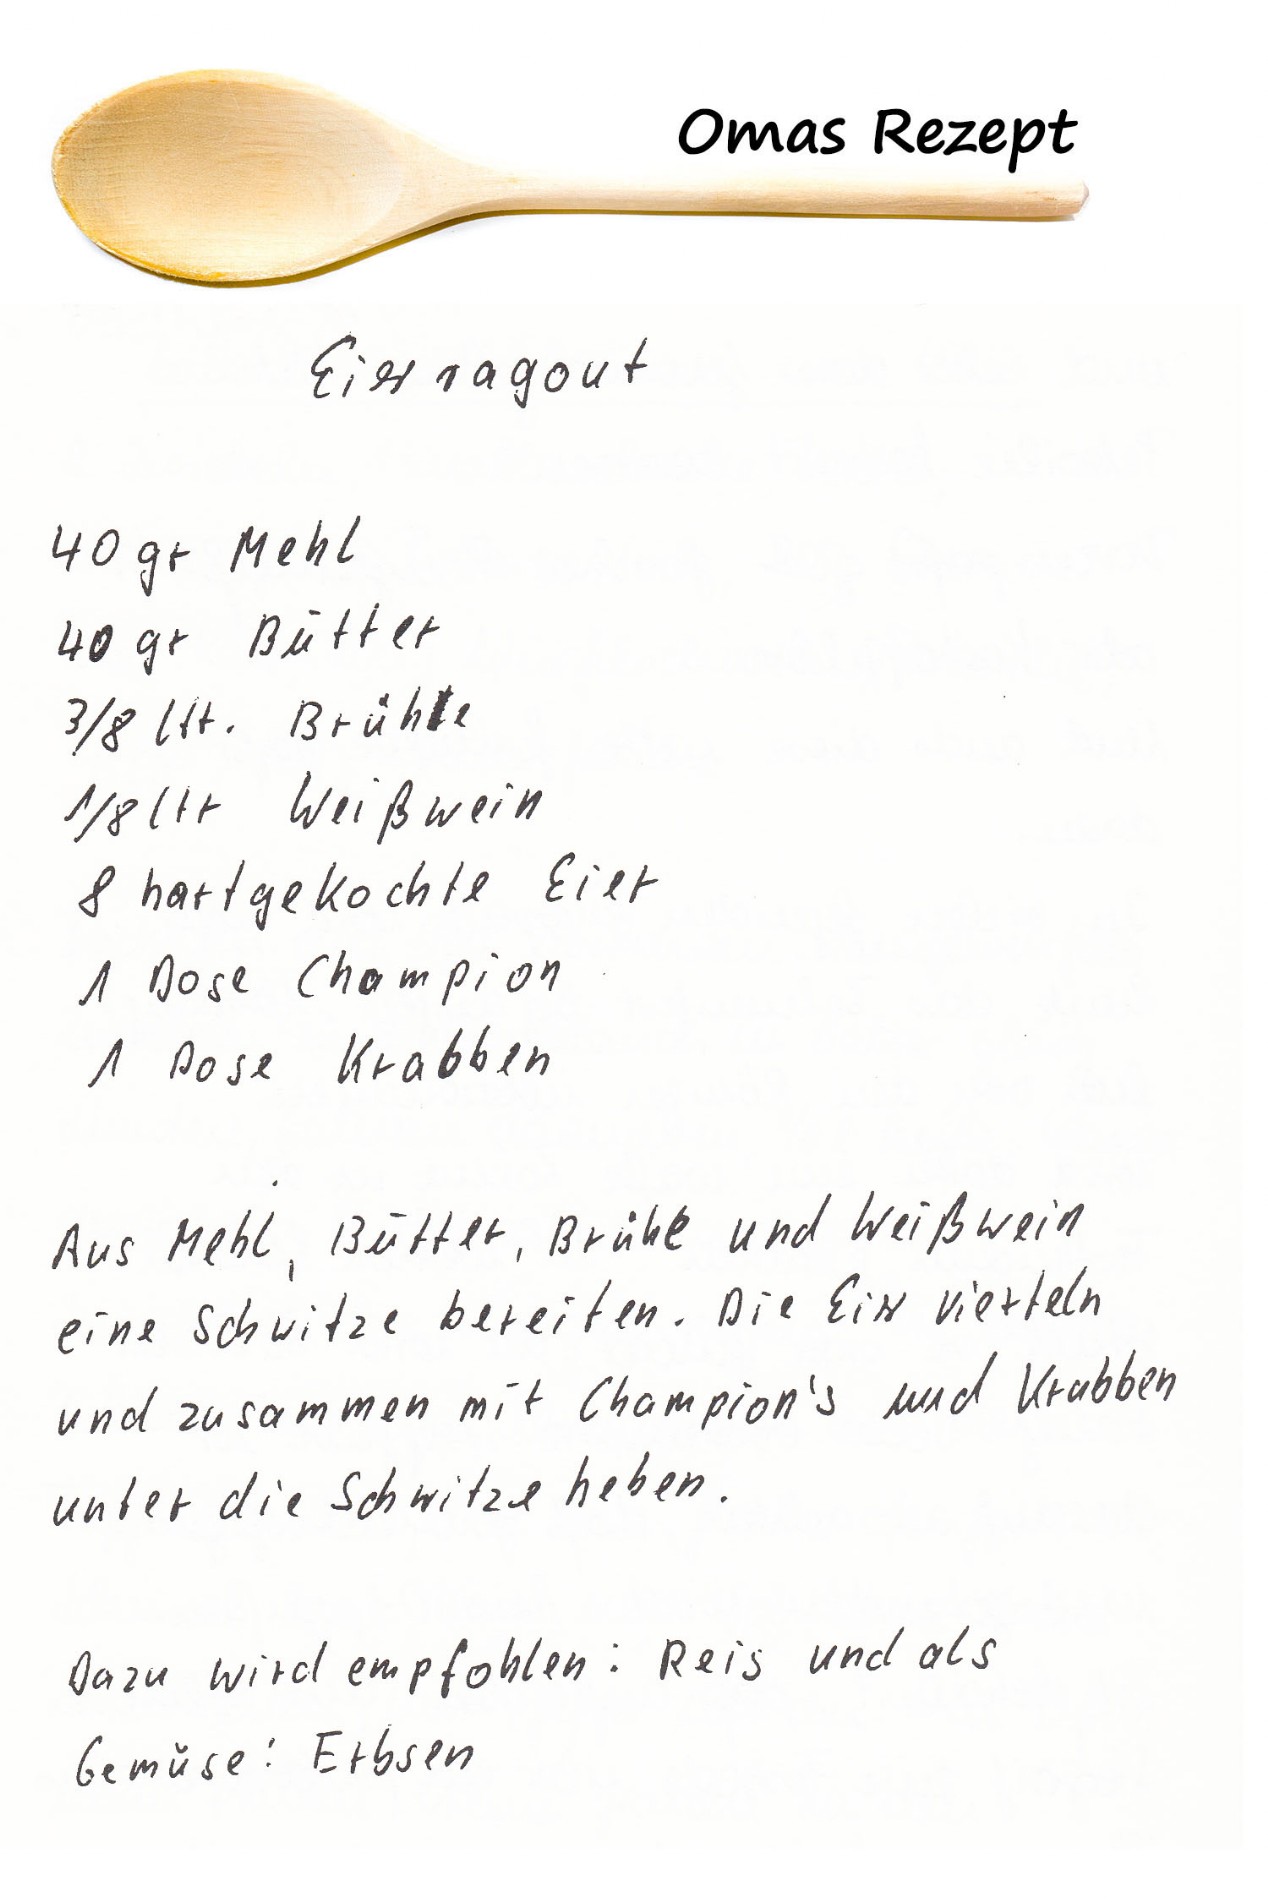 Omas Rezept
Eierragout
40 gr Mehl
40 gr Butter
3/8 ltr. Brühe
1/8 ltr Weißwein
8 hartgekochte Eier
1 Dose Champion
1 Dose Krabben
Aus Mehl, Butter, Brühe und Weißwein
eine Schwitze bereiten. Die Eier vierteln
und zusammen mit Champion's und Krabben
unter die Schwitze heben.
Dazu wird empfohlen: Reis und als
Gemüse: Erbsen